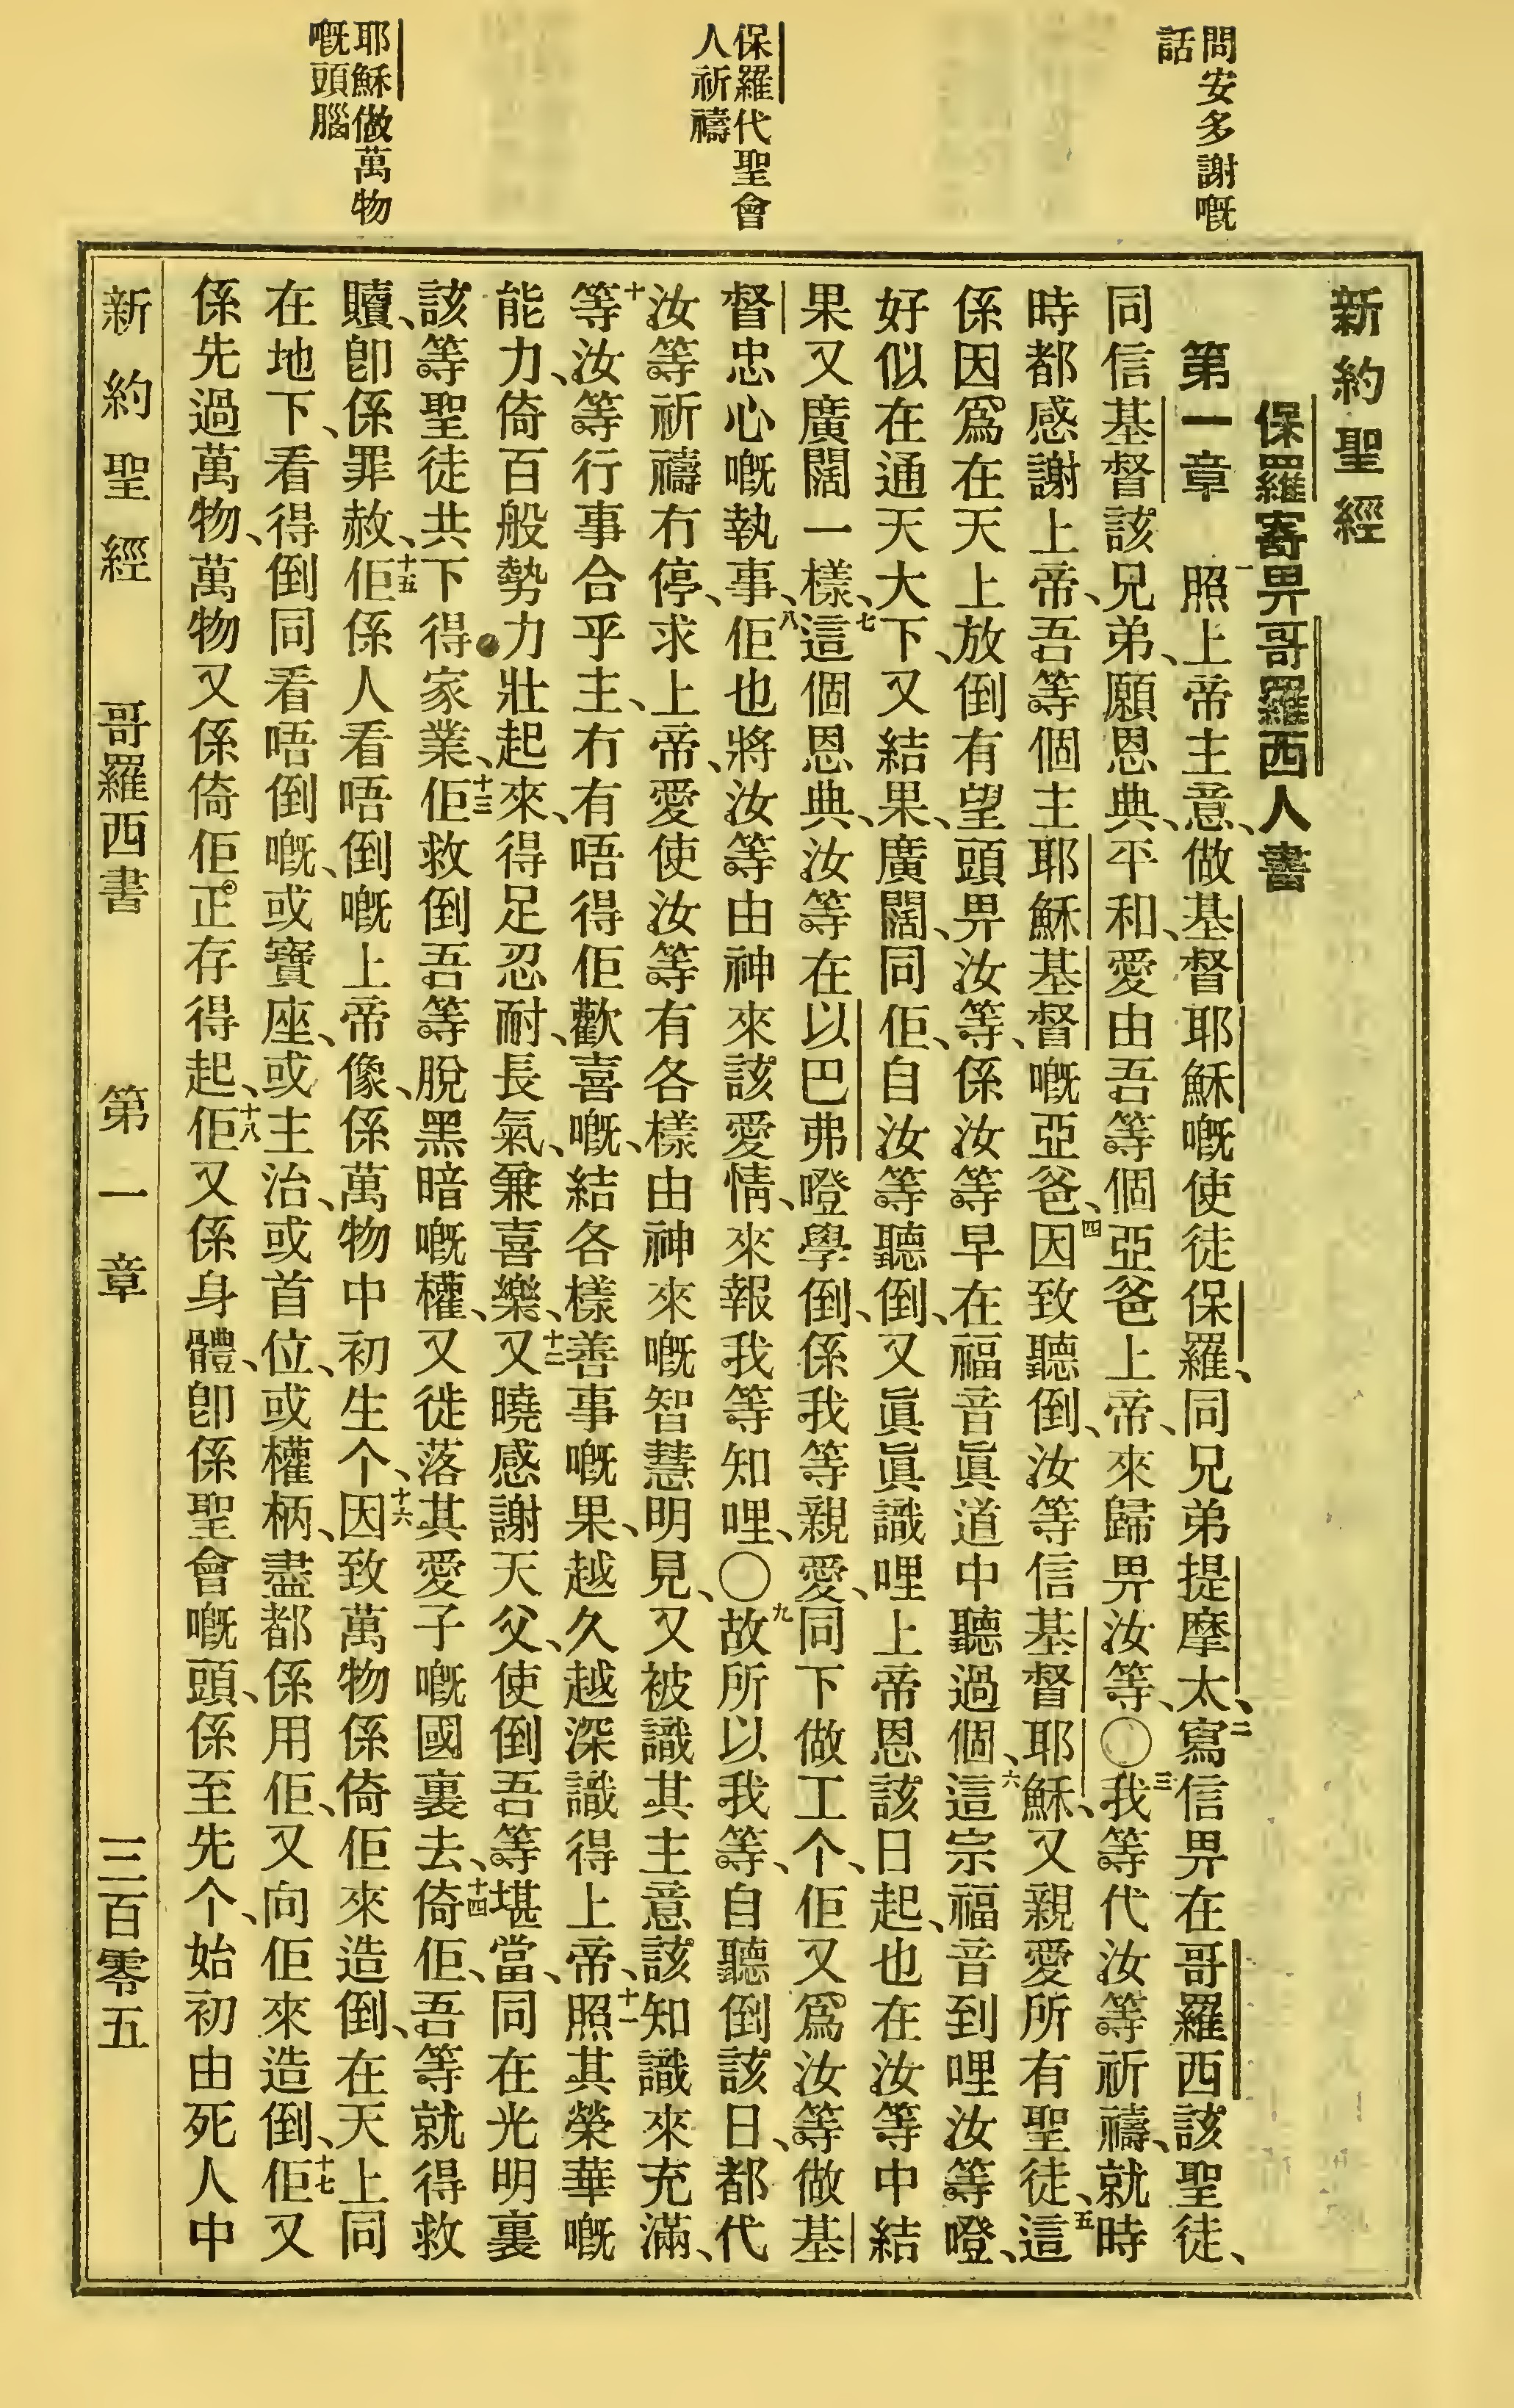 問安多謝嘅
話
保羅代聖會
人祈禱
耶穌做萬物
嘅頭腦
新約聖經
保羅寄畀哥羅西人書
第一章 一照上帝主意、做基督耶穌嘅使徒保羅、同兄弟提摩太、二寫信畀在哥羅西該聖徒、
同信基督該兄弟、願恩典、平和、愛由吾等個亞爸上帝、來歸畀汝等、〇三我等代汝等祈禱、就時
時都感謝上帝、吾等個主耶穌基督嘅亞爸、四因致聽倒、汝等信基督耶穌、又親愛所有聖徒、五這
係因爲在天上放倒有望頭畀汝等、係汝等早在福音眞道中聽過個、六這宗福音到哩汝等噔、
好似在通天大下、又結果、廣闊、同佢、自汝等聽倒、又眞眞識哩上帝恩該日起、也在汝等中結
果又廣闊一樣、七這個恩典、汝等在以巴弗噔學倒、係我等親愛、同下做工个、佢又爲汝等做基
督忠心嘅執事、八佢也將汝等由神來該愛情、來報我等知哩、〇九故所以我等、自聽倒該日、都代
汝等祈禱冇停、求上帝、愛使汝等有各樣由神來嘅智慧明見、又被識其主意該知識來充滿、
十等汝等行事合乎主、冇有唔得佢歡喜嘅、結各樣善事嘅果、越久越深識得上帝、十一照其榮華嘅
能力、倚百般勢力壯起來、得足忍耐、長氣、兼喜樂、十二又曉感謝天父、使倒吾等堪當、同在光明裏
該等聖徒共下得家業、十三佢救倒吾等脫黑暗嘅權、又徙落其愛子嘅國裏去、十四倚佢、吾等就得救
贖、卽係罪赦、十五佢係人看唔倒嘅上帝像、係萬物中初生个、十六因致萬物係倚佢來造倒、在天上同
在地下、看得倒同看唔倒嘅、或寶座、或主治、或首位、或權柄、盡都係用佢、又向佢來造倒、十七佢又
係先過萬物、萬物又係倚佢正存得起、十八佢又係身體、卽係聖會嘅頭、係至先个、始初由死人中
新約聖經 哥羅西書 第一章 三百零五